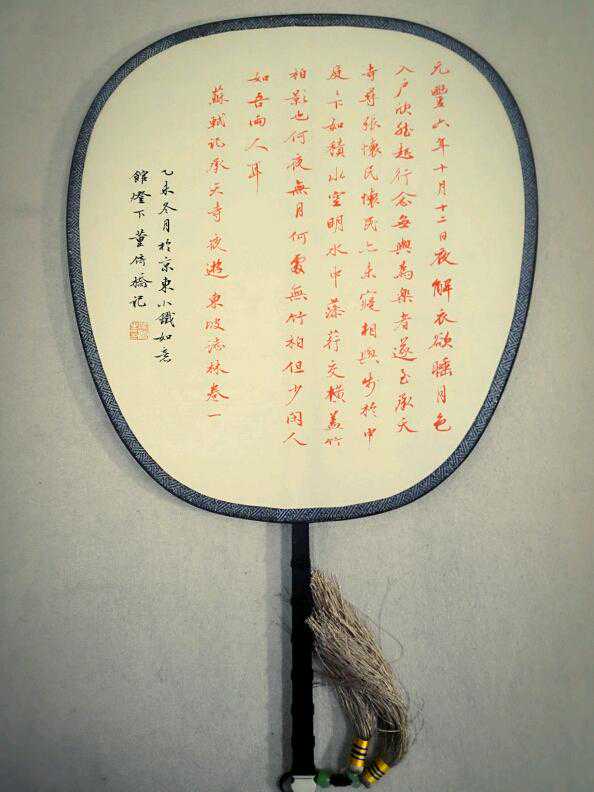 元豐六年十月十二日夜解衣欲睡月色
入戶欣然起行念無與為樂者遂至承天
寺尋張懷民懷民亦未寢相與步於中
庭下如積水空明水中藻荇交橫蓋竹
柏影也何夜無月何處無竹柏但少閑人
如吾兩人耳
蘇軾記承天寺夜遊 東坡志林卷一
乙未冬月於京東小鐵如意
館燈下董倚橋記